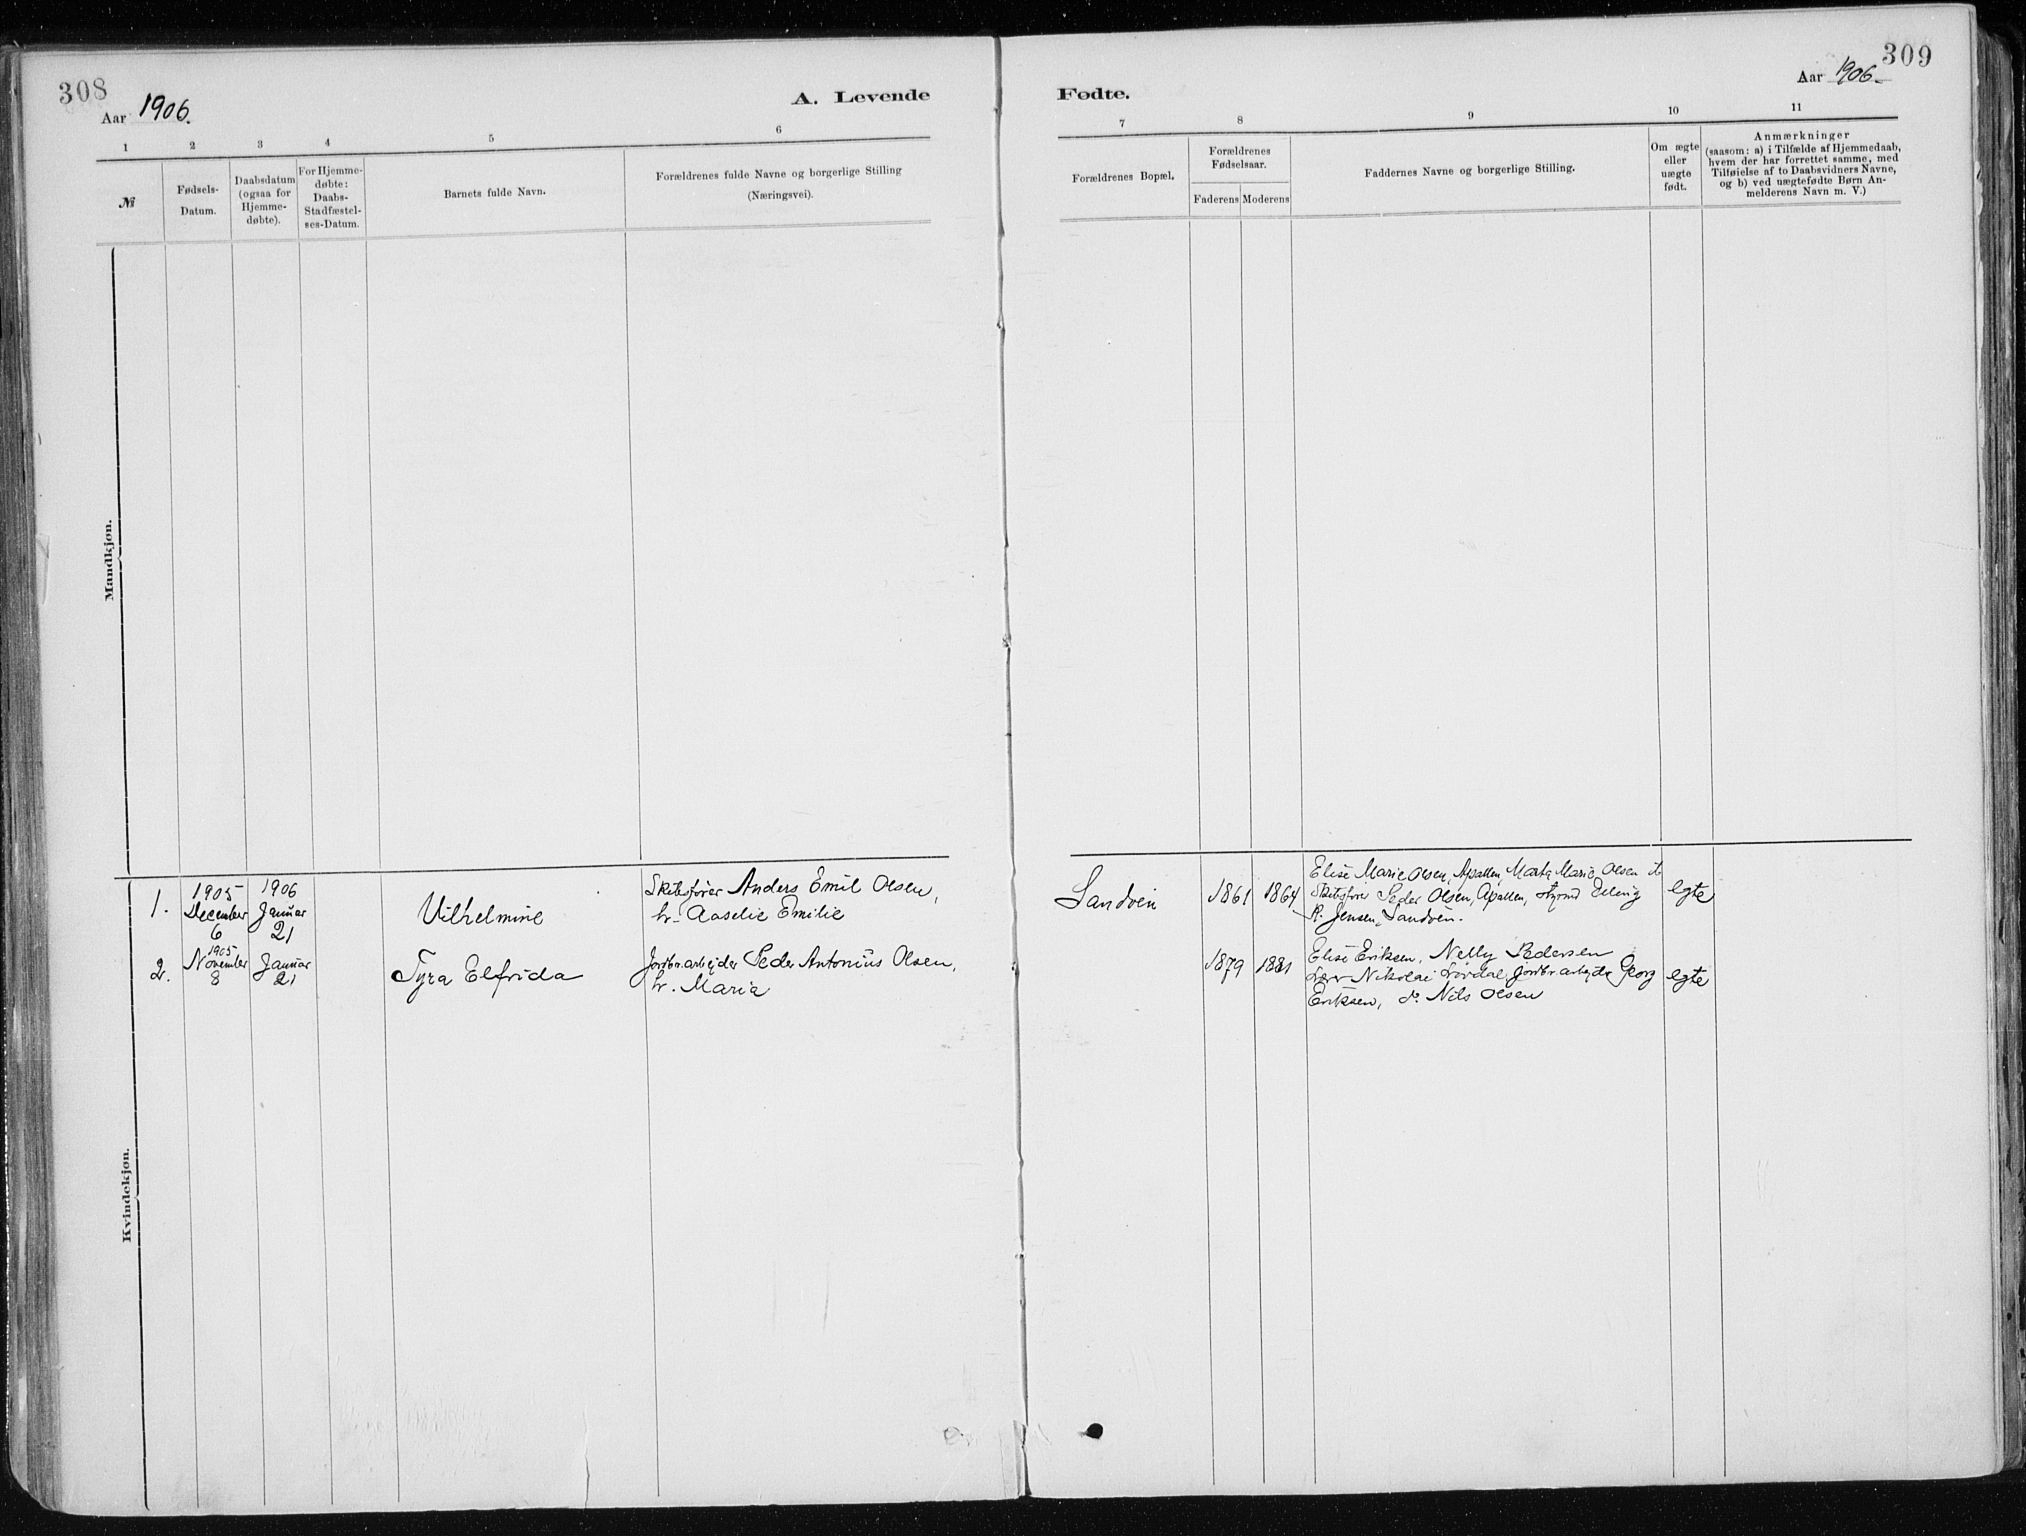 308
Aar 1906.
A. Levende
1
2
3
4
5
6
№
Fødsels-
Datum.
Daabsdatum
(ogsaa for
Hjemme-
døbte).
For Hjemme-
døbte:
Daabs-
Stadfæstel-
ses-Datum.
Barnets fulde Navn.
Forældrenes fulde Navne og borgerlige Stilling
(Næringsvei).
Mandkjøn.
Kvindekjøn.
1.
1905
December
6
1906
Januar
21
Vilhelmine
Skibsfører Anders Emil Olsen,
h. Aaselie Emilie
2.
1905
November
8
Januar
21
Tyra Elfrida
Jordbr.arbejder Peder Antonius Olsen,
h. Maria
309
Aar 1906.
Fødte.
7
8
9
10
11
Forældrenes Bopæl.
Forældrenes
Fødselsaar.
Faderens
Moderens
Faddernes Navne og borgerlige Stilling.
Om ægte
eller
uægte
født.
Anmærkninger
(saasom: a) i Tilfælde af Hjemmedaab,
hvem der har forrettet samme, med
Tilføielse af to Daabsvidners Navne,
og b) ved uægtefødte Børn An-
melderens Navn m. V.)
Sandvin
1861
1864
Elise Marie Olsen, Apallen, Marta Marie Olsen
Skibsfører Peder Olsen, Apallen, Styrmd
Jensen, Sandvin.
egte
1879
1881
Elise Eriksen, Nelly Pedersen
Nikolai Lövdal, Jordbr.arbejder Georg
Eriksen, do Nils Olsen
egte